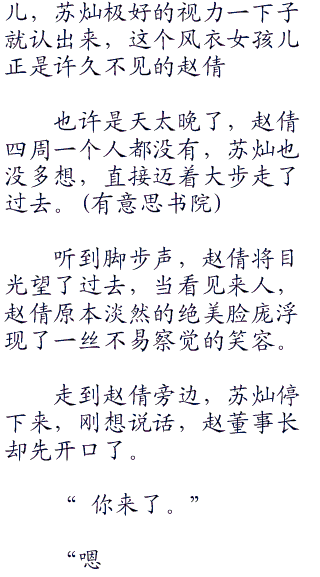 儿，苏灿极好的视力一下子
就认出来，这个风衣女孩儿
正是许久不见的赵倩
也许是天太晚了，赵倩
四周一个人都没有，苏灿也
没多想，直接迈着大步走了
过去。(有意思书院)
听到脚步声，赵倩将目
光望了过去，当看见来人，
赵倩原本淡然的绝美脸庞浮
现了一丝不易察觉的笑容。
走到赵倩旁边，苏灿停
下来，刚想说话，赵董事长
却先开口了。
“ 你来了。”
“嗯